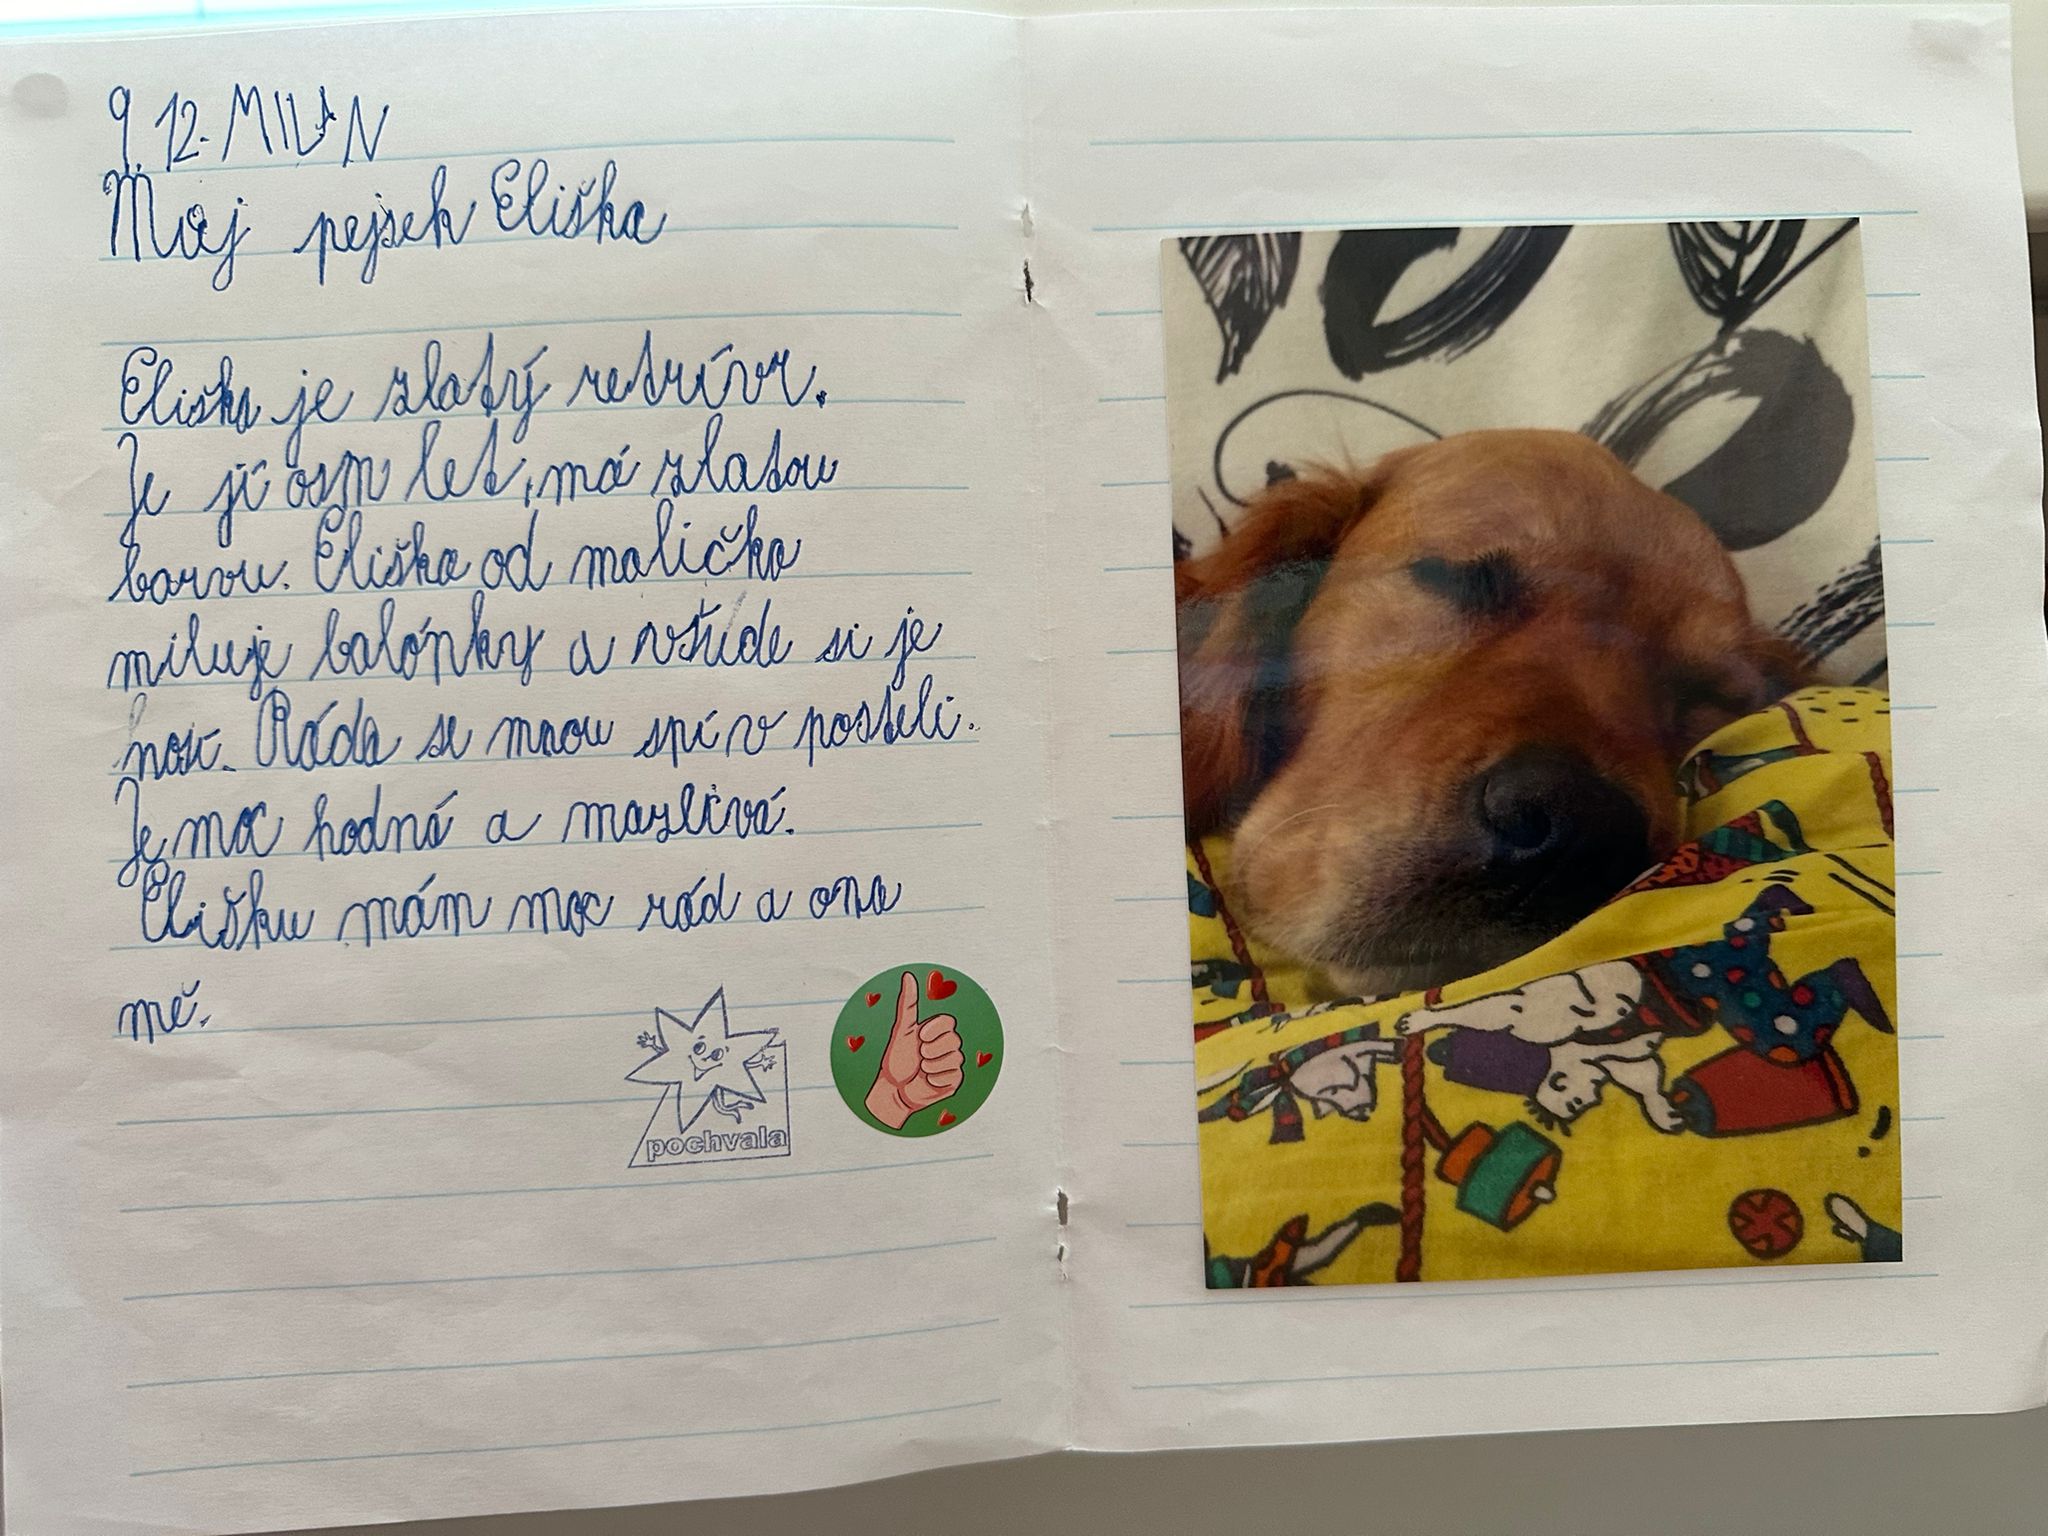 9. 12. MILAN
Moj pejsek Eliška
Eliška je zlatý retrívr.
Je jí osm let, má zlatou
barvu. Eliška od malička
miluje balónky a všude si je
nosí. Ráda se mnou spí v posteli.
Je moc hodná a mazlivá.
Elišku mám moc rád a ona
mě.
pochvala